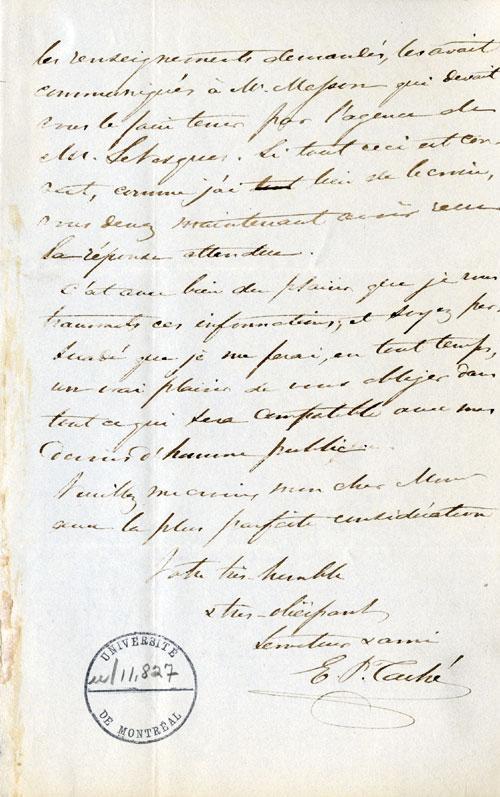 les renseignements demandés, les avait
communiqués à Mr. Masson qui devait
vous le faire tenir par l'agence de
Mr. LeVasques. Si tout ceci est cor-
rect, comme j'ai tout lieu de le croire,
vous devez maintenant avoir reçu
la réponse attendue.
C'est avec bien du plaisir que je vous
transmets ces informations, et soyez per-
suadé que je me ferai, en tout temps,
un vrai plaisir de vous obliger dans
tout ce qui sera compatible avec mes
devoirs d'homme public.
Veuillez me croire mon cher Monr
avec la plus parfaite considération
Votre très-humble
& très-obéissant
serviteur & ami
E. P. Taché
UNIVERSITÉ
u/11,827
DE MONTRÉAL